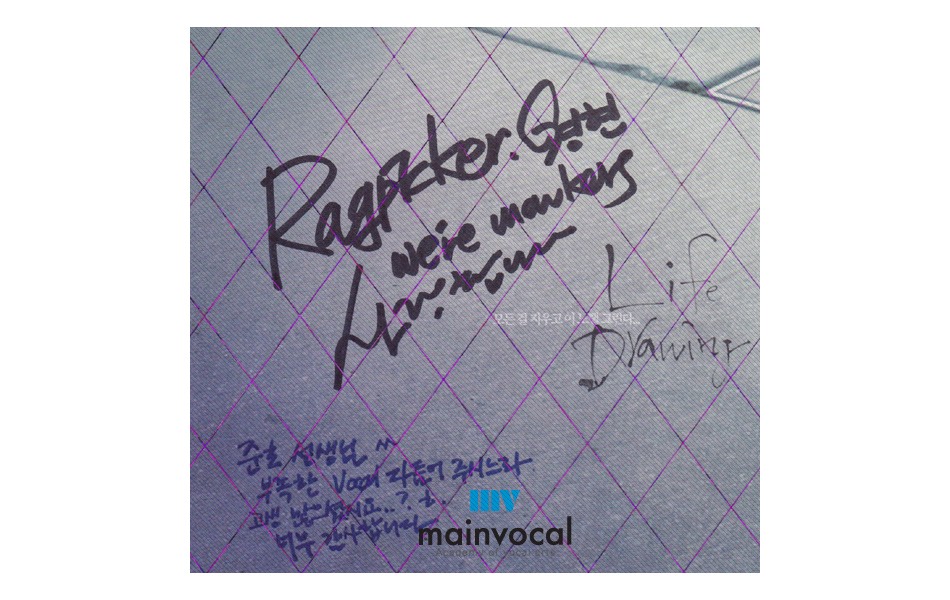 Ragpickker.
we're monkeys
Life
Drawing
모든 걸 지우고 이 느낌 그린다..
준호 선생님 ^^
부족한 Vocal 다듬어 주시느라
고생 많으셨지요..?
너무 감사합니다
mv
mainvocal
Academy of vocal arts